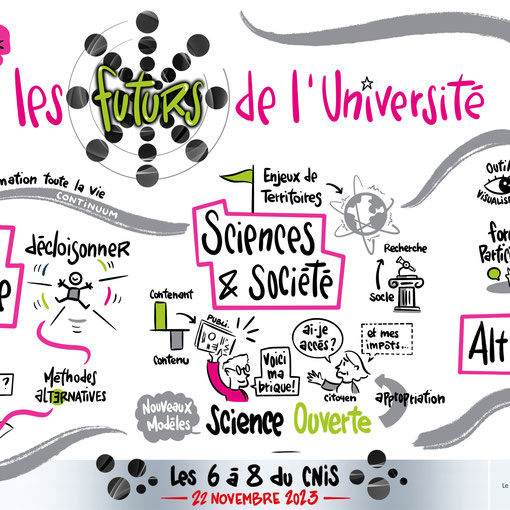 les futurs de l'Université
mation toute la vie
CONTINUUM
décloisonner
Méthodes
alTERNATIVES
?
Enjeux de
Territoires
Sciences
& Société
Recherche
Socle
Contenant
Contenu
PUBLI.
Voici
ma
brique!
ai-je
accès?
citoyen
et mes
impâts...
appropriation
Nouveaux
Modèles
Science Ouverte
Outil
VISUALIS
For
Partici
Alt
Les 6 à 8 du CNiS
22 NOVEMBRE 2023
Le